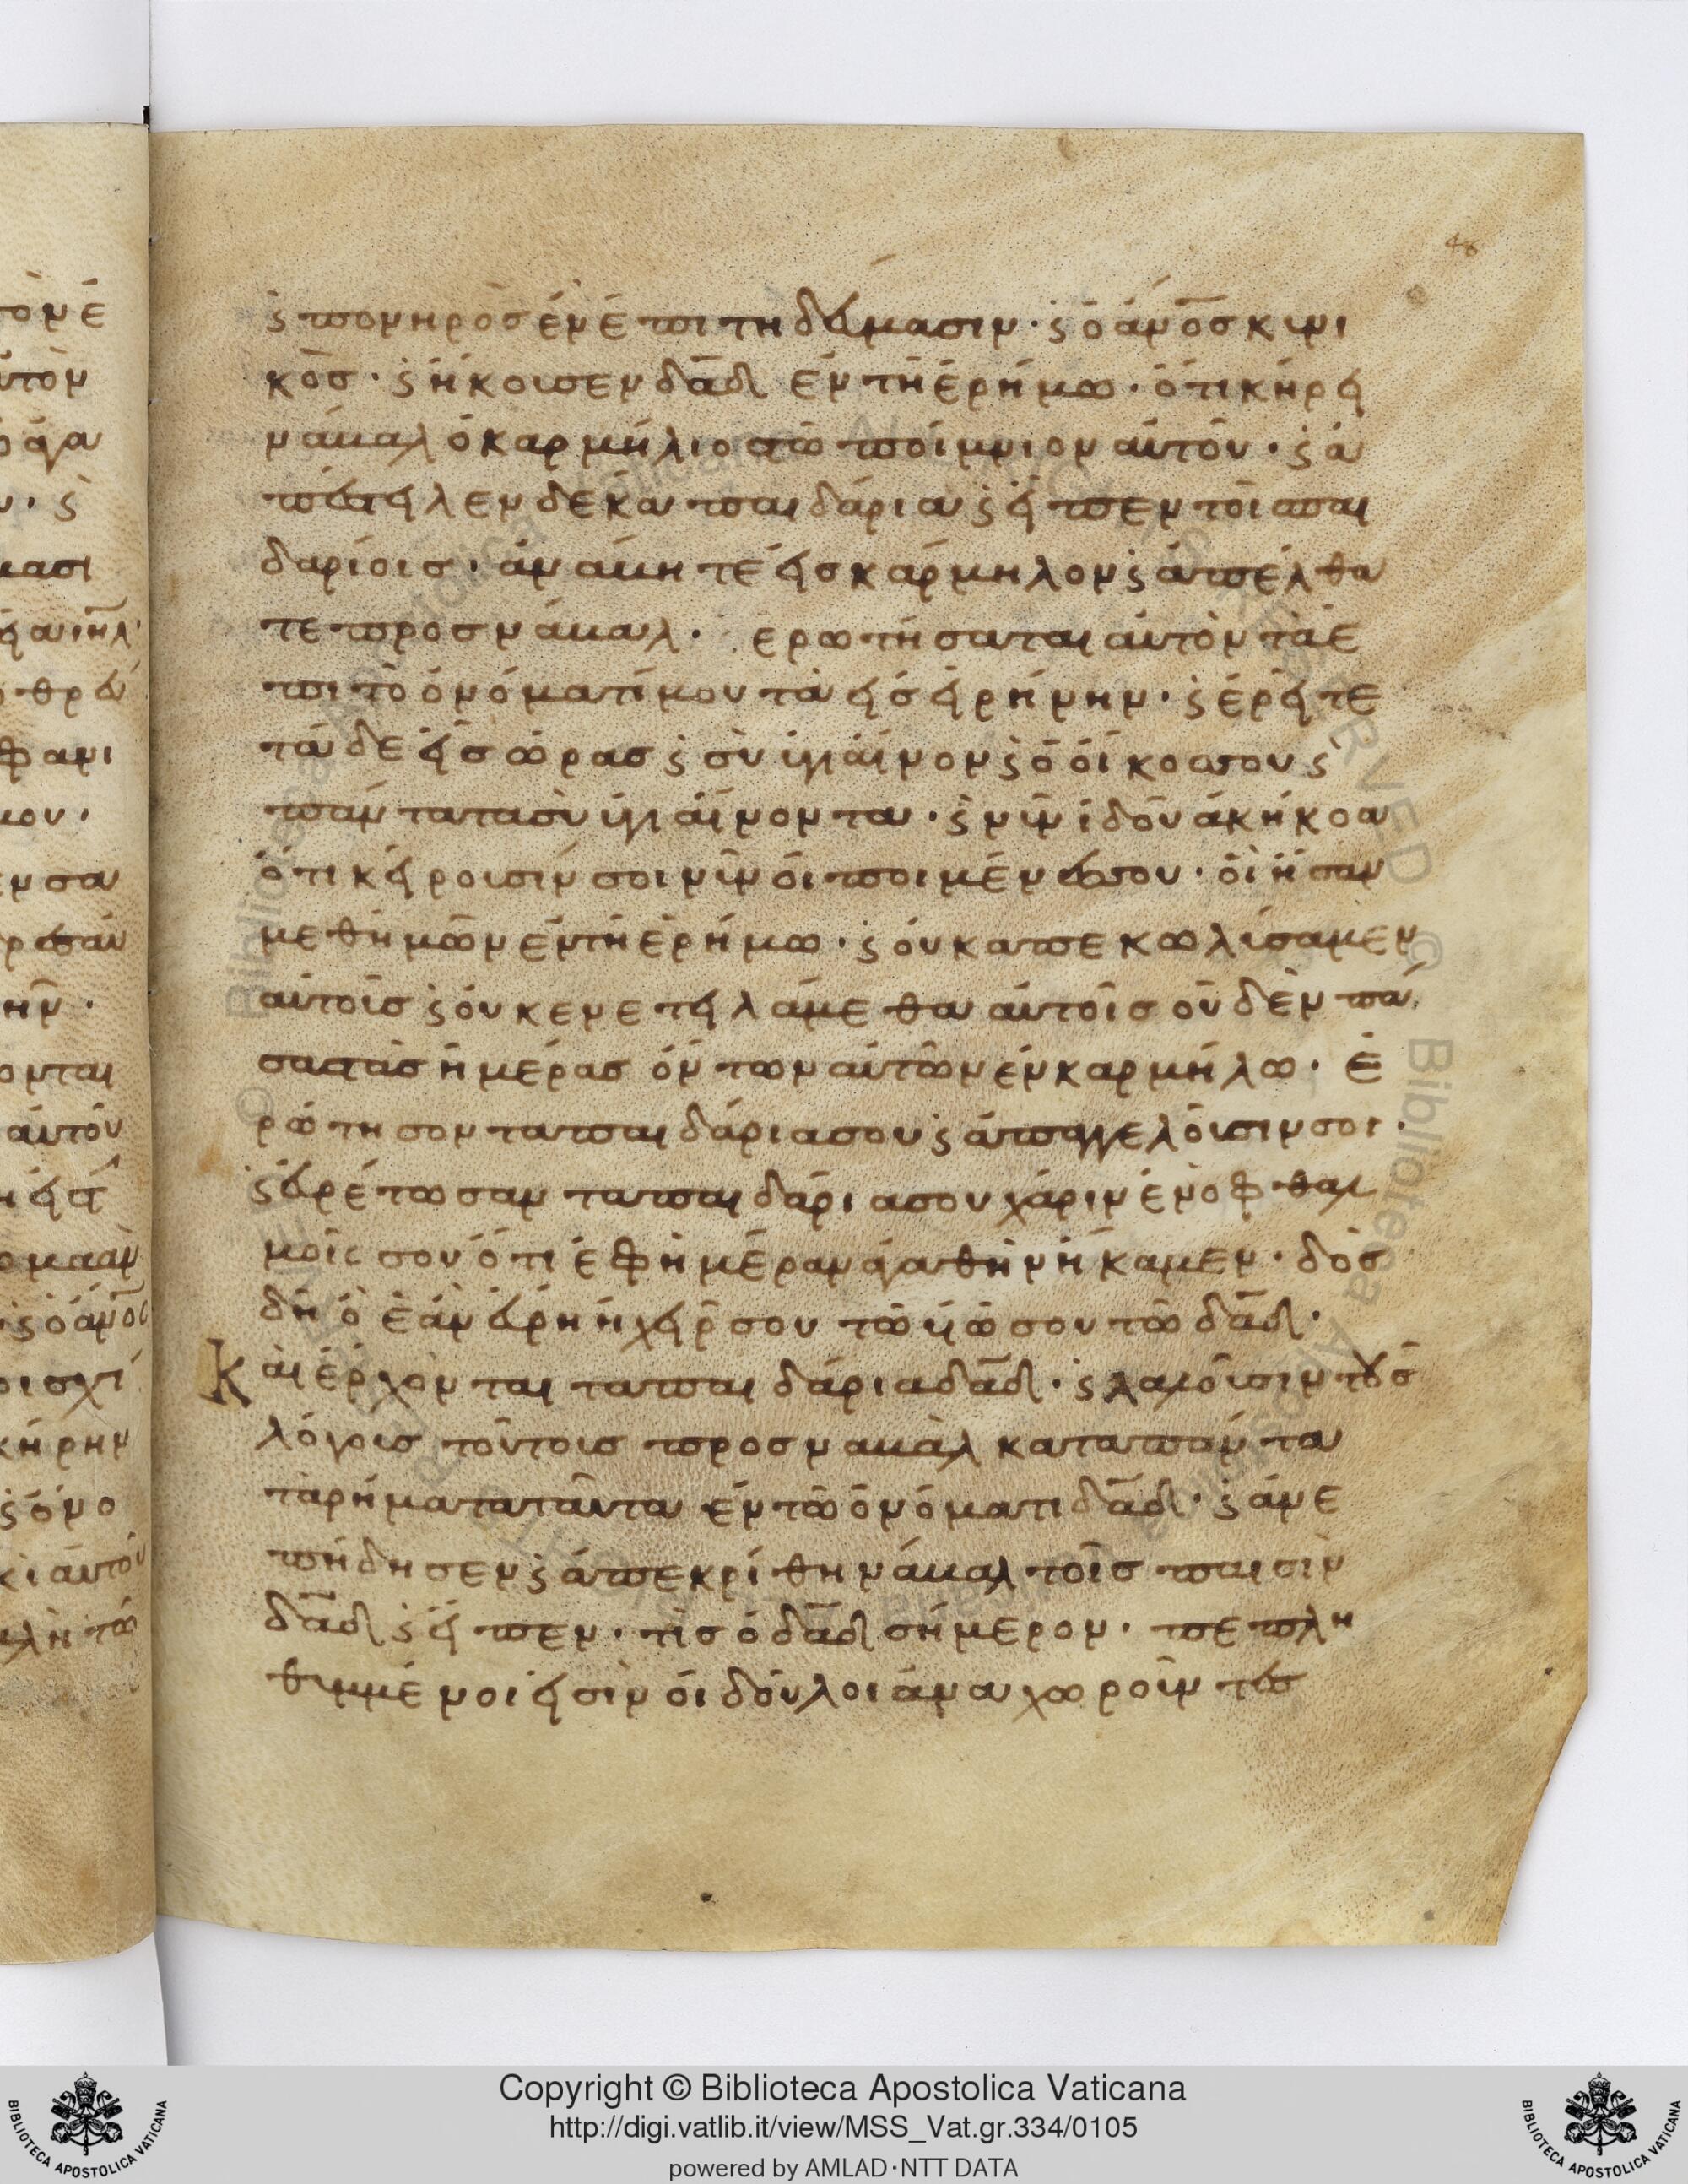 ϛ πονηρὸσ ἐν ἐπιτηδεύμασιν· ϛ ὁ ἀν̅ο̅σ κυνι
κὸσ· ϛ ἤκουσεν δ̅α̅δ̅ ἐν τῆ ἐρήμω· ὅτι κήρει
νάμαλ ὁ καρμήλιος τὸ ποίμνιον αὐτοῦ· ϛ ἀ
πέστειλεν δεκα παιδάρια ϛ εἶπεν τοῖσ παι
δαρίοισ· ἀνάβητε εἰσ κάρμηλον ϛ ἀπέλθα
τε προσ νάβαλ· ερωτήσαται αὐτὸν τὰ ἐ
πι τὸ ὀνόματί μου τὰ εἰσ εἰρήνην· ϛ ἐρεῖτε
τάδε εἰσ ὥρασ ϛ σὺ ὑγιαίνον ϛ ὁ οἶκοσ σου ϛ
πάντα τὰ σὺ ὑγιαίνοντα· ϛ νῦν ἰδοῦ ἀκήκοα
ὅτι κείρουσίν σοι νῦν οἱ ποιμένεσ σου· οἳ ἦσαν
μεθημῶν ἐν τῆ ἐρήμω· ϛ οὐκ απεκωλύσαμεν
αὐτοὺσ ϛ οὐκ ενετειλάμεθα αὐτοῖσ οὐδὲν πά
σασ τὰσ ἡμέρασ ὄντων αὐτῶν ἐν καρμήλω· ἐ
ρώτησον τα παιδάρια σου ϛ ἀπαγγελοῦσιν σοι·
ϛ εὑρέτωσαν τα παιδάρια σου χάριν ἐν ὀφθαλ
μοῖς σοῦ ὅτι ἐφ ἡμέραν ἀγαθὴν ἥκαμεν· δὸσ
δὴ ὃ ἐὰν εὕρη ἡ χείρ σου τῶ υ̅ῶ σου τῶ δ̅α̅δ̅·
Καὶ ἔρχονται τα παιδάρια δ̅α̅δ̅· ϛ λαλοῦσιν τοὺσ
λόγουσ τούτουσ προσ ναβὰλ κατα πάντα
τὰ ρήματα ταῦτα ἐν τῶ ὀνόματι δ̅α̅δ̅· ϛ ἀνε
πήδησεν ϛ ἀπεκρίθη νάβαλ τοῖσ παισὶν
δ̅α̅δ̅ ϛ εἶπεν· τίσ ὁ δ̅α̅δ̅ σήμερον· πεπλη
θυμμένοι εἰσὶν οἱ δοῦλοι ἀναχωροῦντεσ
Copyright © Biblioteca Apostolica Vaticana
http://digi.vatlib.it/view/MSS_Vat.gr.334/0105
powered by AMLAD·NTT DATA